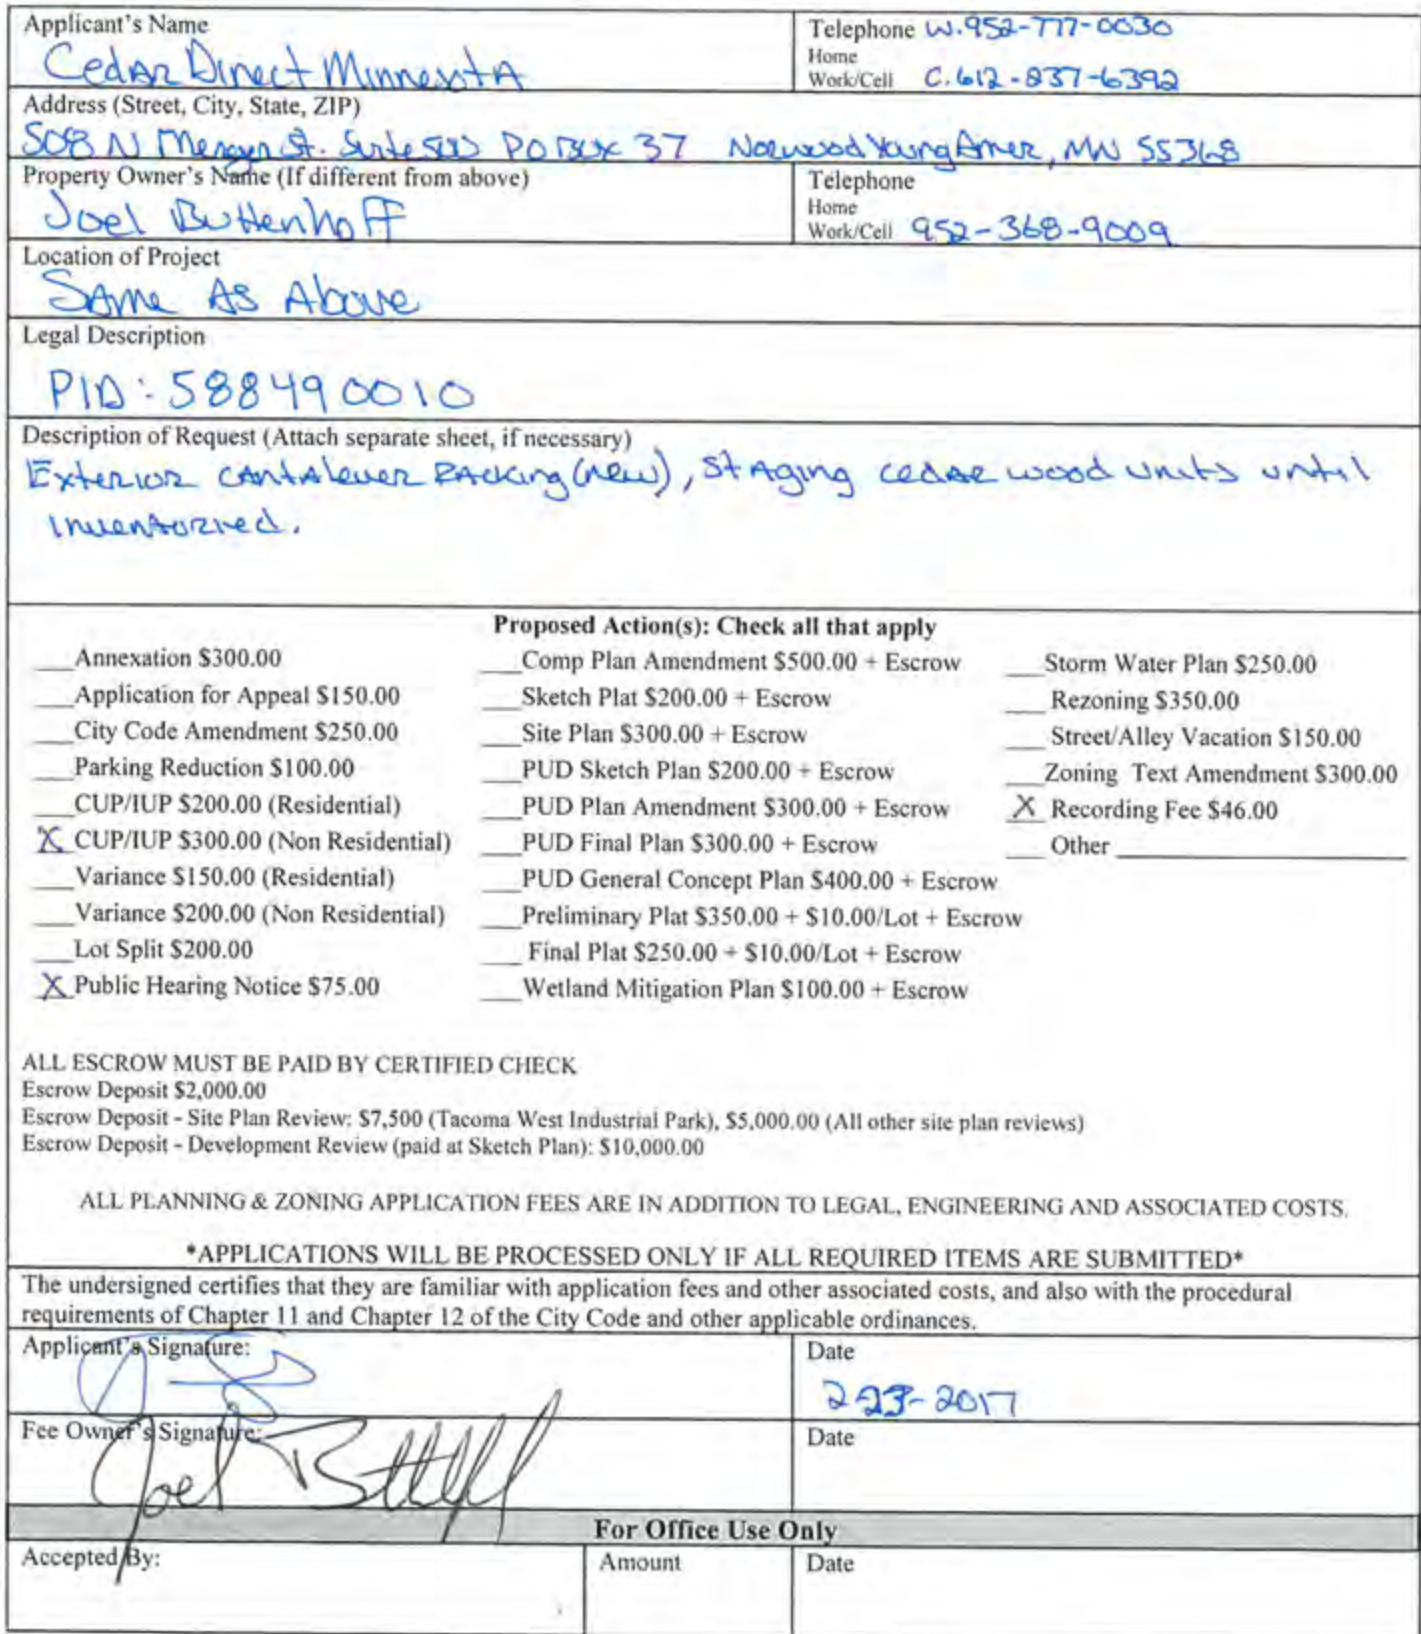 Applicant's Name
Cedar Direct Minnesota
Telephone W. 952-777-0030
Home
Work/Cell C. 612-837-6392
Address (Street, City, State, ZIP)
508 N St. Suite 500 PO Box 37 Norwood Young Amer, MN 55368
Property Owner's Name (If different from above)
Joel Buttenhoff
Telephone
Home
Work/Cell 952-368-9009
Location of Project
Same As Above
Legal Description
PID: 588490010
Description of Request (Attach separate sheet, if necessary)
Exterior cantalever racking (new), staging cedar wood units until
inventorried.
Proposed Action(s): Check all that apply
___Annexation $300.00
___Application for Appeal $150.00
___City Code Amendment $250.00
___Parking Reduction $100.00
___CUP/IUP $200.00 (Residential)
X CUP/IUP $300.00 (Non Residential)
___Variance $150.00 (Residential)
___Variance $200.00 (Non Residential)
___Lot Split $200.00
X Public Hearing Notice $75.00
___Comp Plan Amendment $500.00 + Escrow
___Sketch Plat $200.00 + Escrow
___Site Plan $300.00 + Escrow
___PUD Sketch Plan $200.00 + Escrow
___PUD Plan Amendment $300.00 + Escrow
___PUD Final Plan $300.00 + Escrow
___PUD General Concept Plan $400.00 + Escrow
___Preliminary Plat $350.00 + $10.00/Lot + Escrow
___Final Plat $250.00 + $10.00/Lot + Escrow
___Wetland Mitigation Plan $100.00 + Escrow
___Storm Water Plan $250.00
___Rezoning $350.00
___Street/Alley Vacation $150.00
___Zoning Text Amendment $300.00
X Recording Fee $46.00
___Other ___
ALL ESCROW MUST BE PAID BY CERTIFIED CHECK
Escrow Deposit $2,000.00
Escrow Deposit - Site Plan Review: $7,500 (Tacoma West Industrial Park), $5,000.00 (All other site plan reviews)
Escrow Deposit - Development Review (paid at Sketch Plan): $10,000.00
ALL PLANNING & ZONING APPLICATION FEES ARE IN ADDITION TO LEGAL, ENGINEERING AND ASSOCIATED COSTS.
*APPLICATIONS WILL BE PROCESSED ONLY IF ALL REQUIRED ITEMS ARE SUBMITTED*
The undersigned certifies that they are familiar with application fees and other associated costs, and also with the procedural
requirements of Chapter 11 and Chapter 12 of the City Code and other applicable ordinances.
Applicant's Signature:
Date
2-23-2017
Fee Owner's Signature:
Joel
Date
For Office Use Only
Accepted By:
Amount
Date